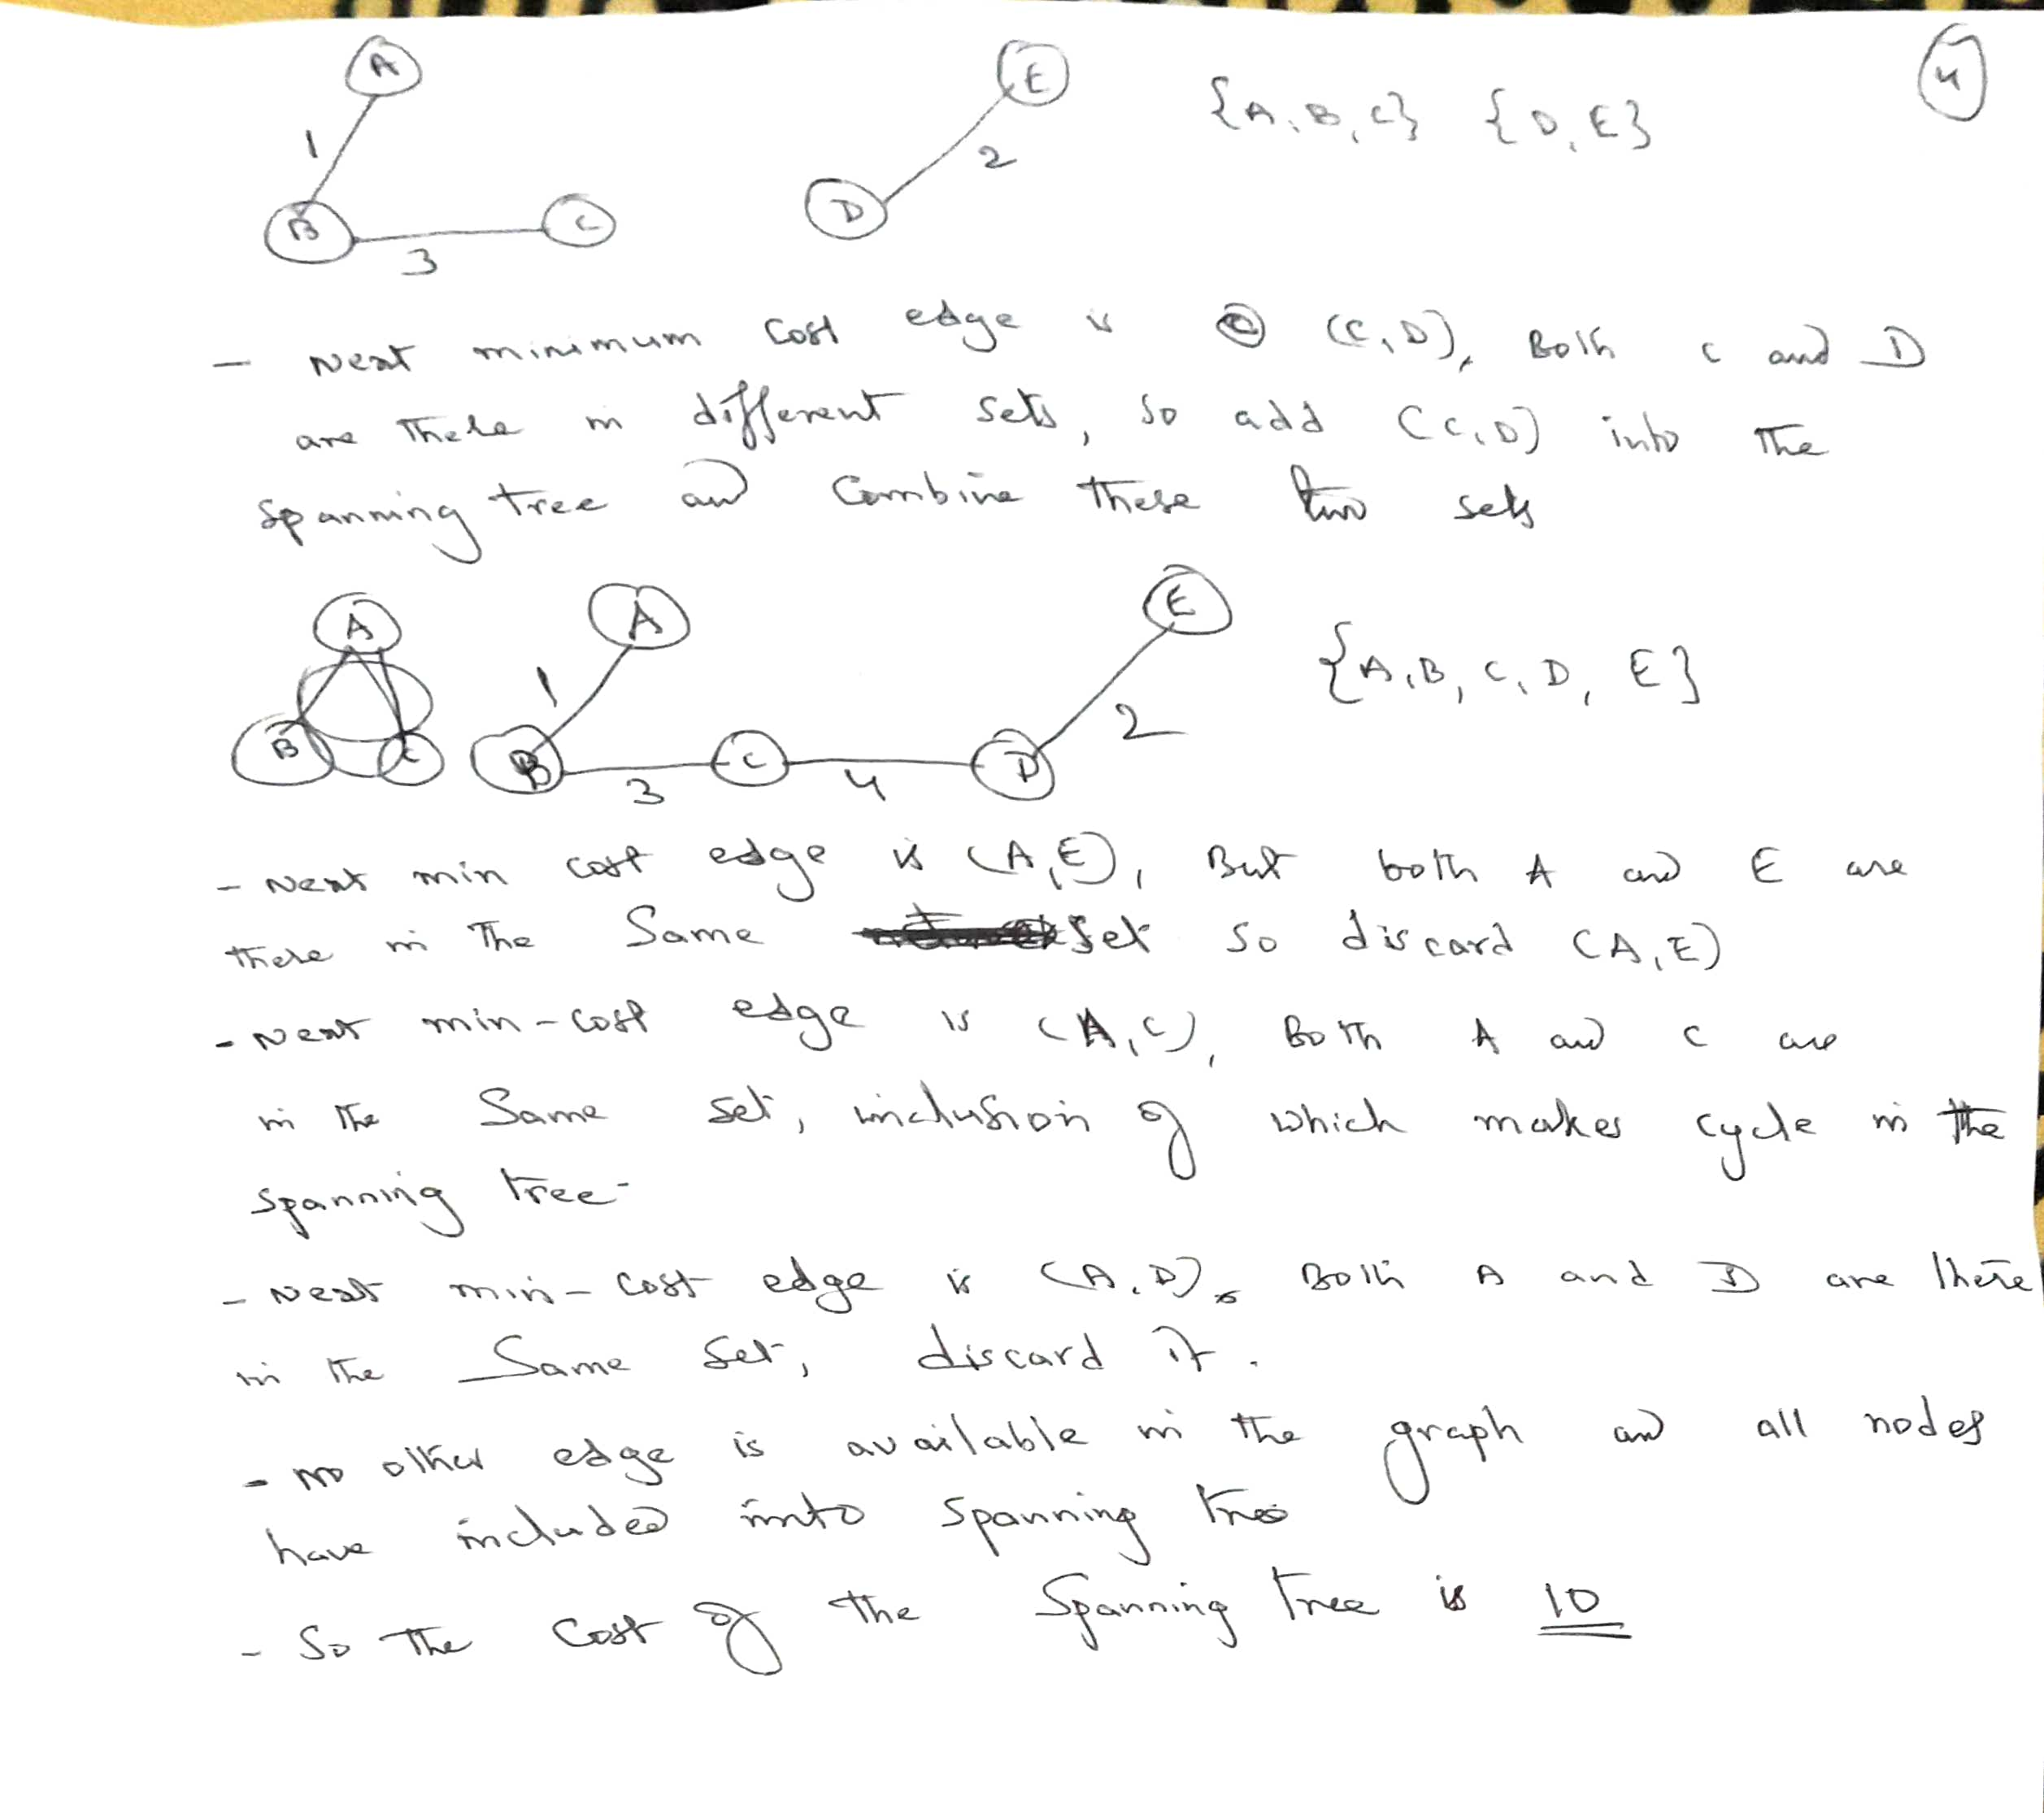 4
A
E
{A, B, C} {D, E}
1
2
B
C
D
3
- Next minimum cost edge is (C, D), Both C and D
are there in different sets, so add (C, D) into the
spanning tree and Combine these two sets
A
A
E
{A, B, C, D, E}
1
2
B
C
B
C
D
3
4
- Next min cost edge is (A, E), But both A and E are
there in the Same set so discard (A, E)
- Next min-cost edge is (A, C), Both A and C are
in the Same set, inclusion of which makes cycle in the
spanning tree
- Next min-cost edge is (A, D), Both A and D are there
in the Same set, discard it.
- no other edge is available in the graph and all nodes
have included into spanning tree
- So the cost of the Spanning Tree is 10